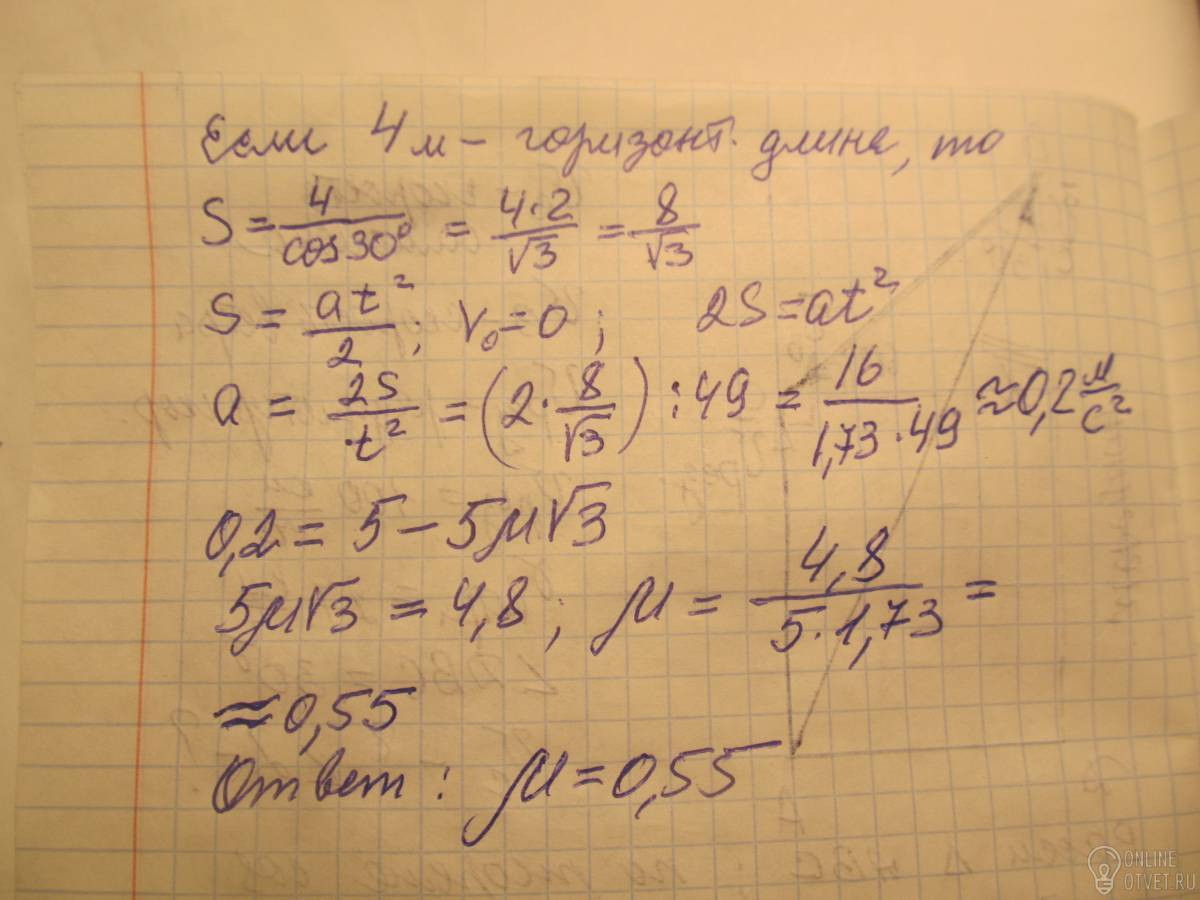 Если 4м – горизонт. длина, то
S = 4/cos30° = 4·2/√3 = 8/√3
S = at²/2; v₀=0; 2S=at²
a = 2S/t² = (2·8/√3):49 = 16/1,73·49 ≈0,2 м/с²
0,2 = 5 – 5μ√3
5μ√3 = 4,8; μ = 4,8/5·1,73 =
≈0,55
Ответ: μ=0,55
ONLINE
OTVET.RU